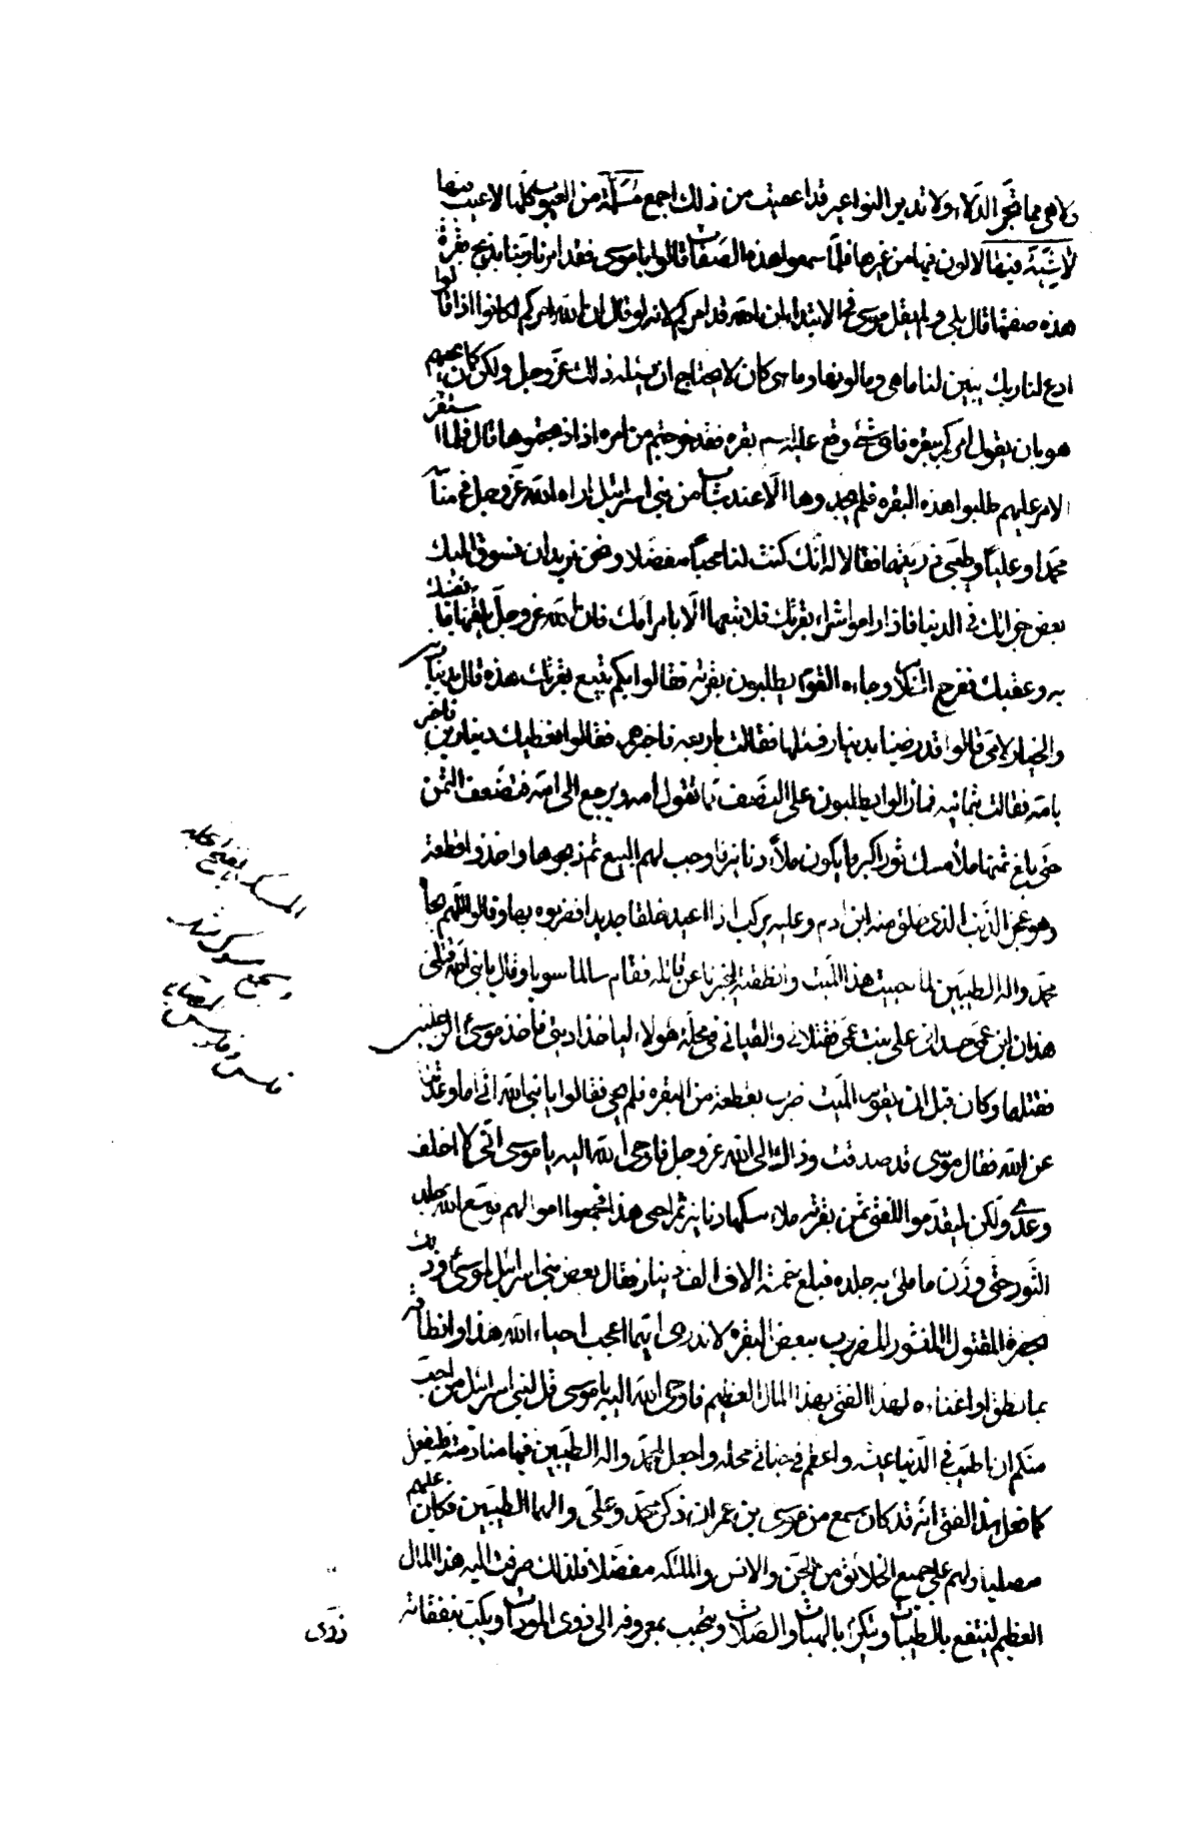 ولا هي مما تجر الدلاء ولا تدير النواعير قد اعفيت من ذلك اجمع مسلمة من العيوب كلها لا عيب فيها
لا شية فيها لا لون فيها من غيرها فلما سمعوا هذه الصفات قالوا يا موسى فقد امرنا ربنا بذبح بقرة
هذه صفتها قال بلى ولم يقل موسى في الابتداء ان الله قد امركم لانه لو قال ان الله امركم لكانوا اذا قالوا
ادع لنا ربك يبين لنا ما هي وما لونها وما هي كان لا يحتاج ان يسئله ذلك عز وجل ولكن كان يجيبهم
هو بان يقول امركم ببقرة فاي شئ وقع عليه اسم بقره فقد خرجتم من امره اذا ذبحتموها قال فلما استقر
الامر عليهم طلبوا هذه البقره فلم يجدوها الا عند شاب من بني اسرائيل اراه الله عز وجل في منامه
محمدا وعليا وطيبي ذريتهما فقالا له انك كنت لنا محبا مفضلا ونحن نريد ان نسوق اليك
بعض جزائك في الدنيا فاذا راموا شراء بقرتك فلا تبعها الا بامر امك فان الله عز وجل يلقنها ما تغنيك
به وعقبك ففرح الغلام وجاءه القوم يطلبون بقرته فقالوا بكم تبيع بقرتك هذه قال بدينارين
والخيار لامي قالوا قد رضينا بدينار فسئلها فقالت باربعة فاخبرهم فقالوا نعطيك دينارين فاخبر
امه فقالت ثمانيه فما زالوا يطلبون على النصف مما تقول امه ويرجع الى امه فتضعف الثمن
حتى بلغ ثمنها ملأ مسك ثور اكبر ما يكون ملأه دنانير فاوجب لهم البيع ثم ذبحوها واخذوا قطعة
وهو عجز الذنب الذي خلق منه ابن ادم وعليه يركب اذا اعيد خلقا جديدا فضربوه بها وقالوا اللهم بجاه
محمد واله الطيبين لما احييت هذا الميت وانطقته ليخبرنا عن قاتله فقام سالما سويا وقال يا نبي الله قتلني
هذان ابنا عمي حسداني على بنت عمي فقتلاني والقياني في محلة هؤلاء لياخذا ديتي فاخذ موسى الرجلين
فقتلهما وكان قبل ان يقوم الميت ضرب بقطعة من البقره فلم يحي فقالوا يا نبي الله اين ما وعدتنا
عن الله فقال موسى قد صدقت وذلك الى الله عز وجل فاوحى الله اليه يا موسى اني لا اخلف
وعدي ولكن ليقدموا للفتى ثمن بقرته ملاء مسكها دنانير ثم احيي هذا فجمعوا اموالهم فوسع الله جلد
الثور حتى وزن ما ملئ به جلده فبلغ خمسة الاف الف دينار فقال بعض بني اسرائيل لموسى وذلك
بحضرة المقتول المنشور المضروب ببعض البقره لا ندري ايهما اعجب احياء الله هذا وانطاقه
بما نطق او اغناءه لهذا الفتى بهذا المال العظيم فاوحى الله اليه يا موسى قل لبني اسرائيل من احب
منكم ان اطيب في الدنيا عيشه واعظم في جناني محله واجعل لمحمد واله الطيبين فيها منادمته فليفعل
كما فعل هذا الفتى انه قد كان يسمع من موسى بن عمران ذكر محمد وعلي والهما الطيبين فكان عليهم
مصليا ولهم على جميع الخلائق من الجن والانس والملئكه مفضلا فلذلك صرفت اليه هذا المال
العظيم لينتفع بالطيبات ويتكرم بالهبات والصلات ويتحبب بمعروفه الى ذوي المودات ويكبت بنفقاته
ذوى
المسك بالفتح الجلد
مسوك
وجمع